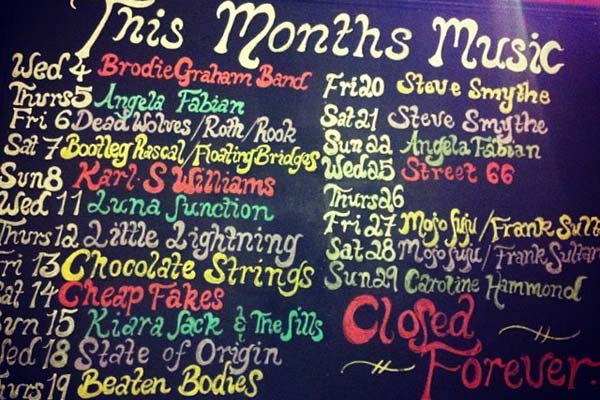 This Months Music
Wed 4 Brodie Graham Band
Thurs 5 Angela Fabian
Fri 6 Dead Wolves / Roth / Rook
Sat 7 Bootleg Rascal / Floating Bridges
Sun 8 Karl.S Williams
Wed 11 Luna Junction
Thurs 12 Little Lightning
Fri 13 Chocolate Strings
Sat 14 Cheap Fakes
Sun 15 Kiara Jack & The Jills
Wed 18 State of Origin
Thurs 19 Beaten Bodies
Fri 20 Steve Smythe
Sat 21 Steve Smythe
Sun 22 Angela Fabian
Wed 25 Street 66
Thurs 26
Fri 27 Mojo Juju / Frank Sult
Sat 28 Mojo Juju / Frank Sultan
Sun 29 Caroline Hammond
Closed
Forever.